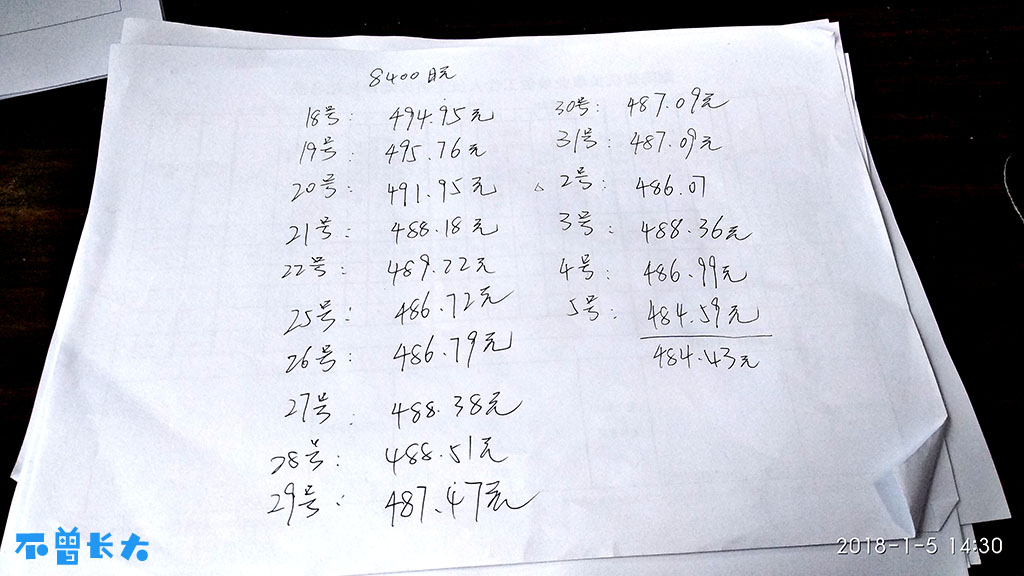 8400日元
18号: 494.95元
19号: 495.76元
20号: 491.95元
21号: 488.18元
22号: 489.22元
25号: 486.72元
26号: 486.79元
27号: 488.38元
28号: 488.51元
29号: 487.47元
30号: 487.09元
31号: 487.09元
2号: 486.07
3号: 488.36元
4号: 486.99元
5号: 484.59元
484.43元
不曾长大
2018-1-5 14:30